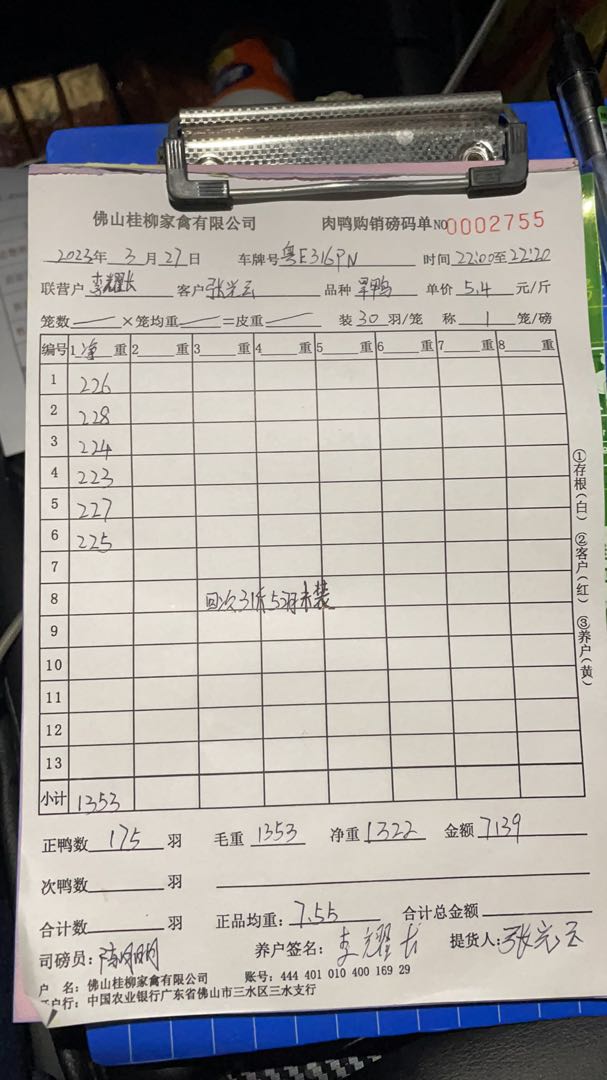 佛山桂柳家禽有限公司 肉鸭购销磅码单 NO 0002755
2023年 3 月 27 日 车牌号 粤E316PN 时间 22:00至22:20
联营户 李耀长 客户 张光云 品种 旱鸭 单价 5.4 元/斤
笼数 ×笼均重 =皮重 装 30 羽/笼 称 1 笼/磅
编号 1 净 重 2 重 3 重 4 重 5 重 6 重 7 重 8 重
1 226
2 228
3 224
4 223
5 227
6 225
7
8 回次31斤5羽未装
9
10
11
12
13
小计 1353
正鸭数 175 羽 毛重 1353 净重 1322 金额 7139
次鸭数 羽
合计数 羽 正品均重: 7.55 合计总金额
司磅员: 陈明明 养户签名: 李耀长 提货人: 张光云
户 名: 佛山桂柳家禽有限公司 账号: 444 401 010 400 169 29
户行: 中国农业银行广东省佛山市三水区三水支行
①存根(白) ②客户(红) ③养户(黄)